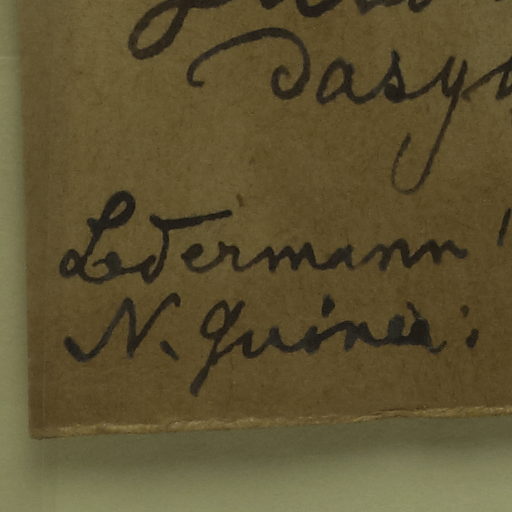 dasy
Ledermann
N. Guinea: